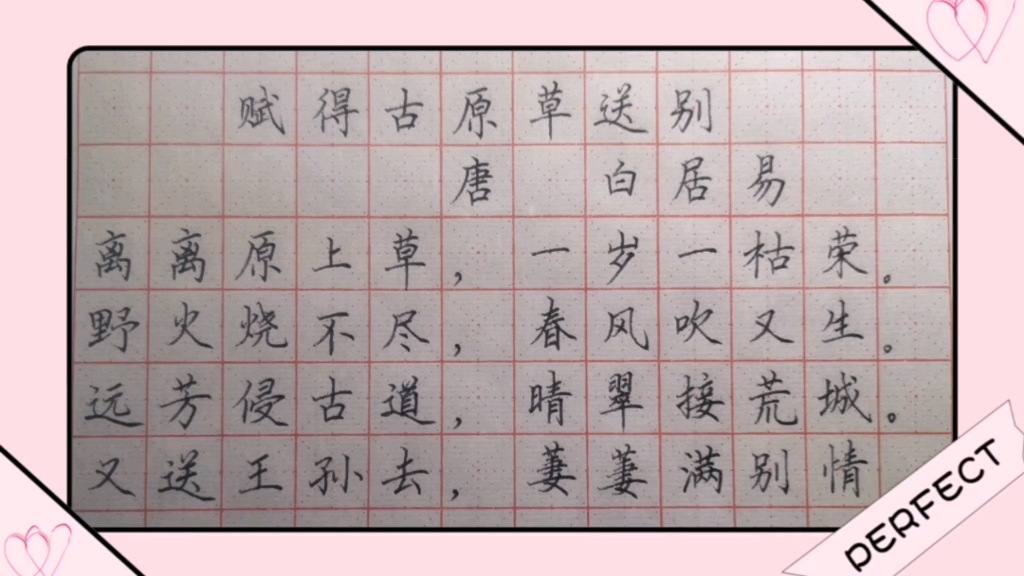 赋得古原草送别
唐 白居易
离离原上草，一岁一枯荣。
野火烧不尽，春风吹又生。
远芳侵古道，晴翠接荒城。
又送王孙去，萋萋满别情
PERFECT